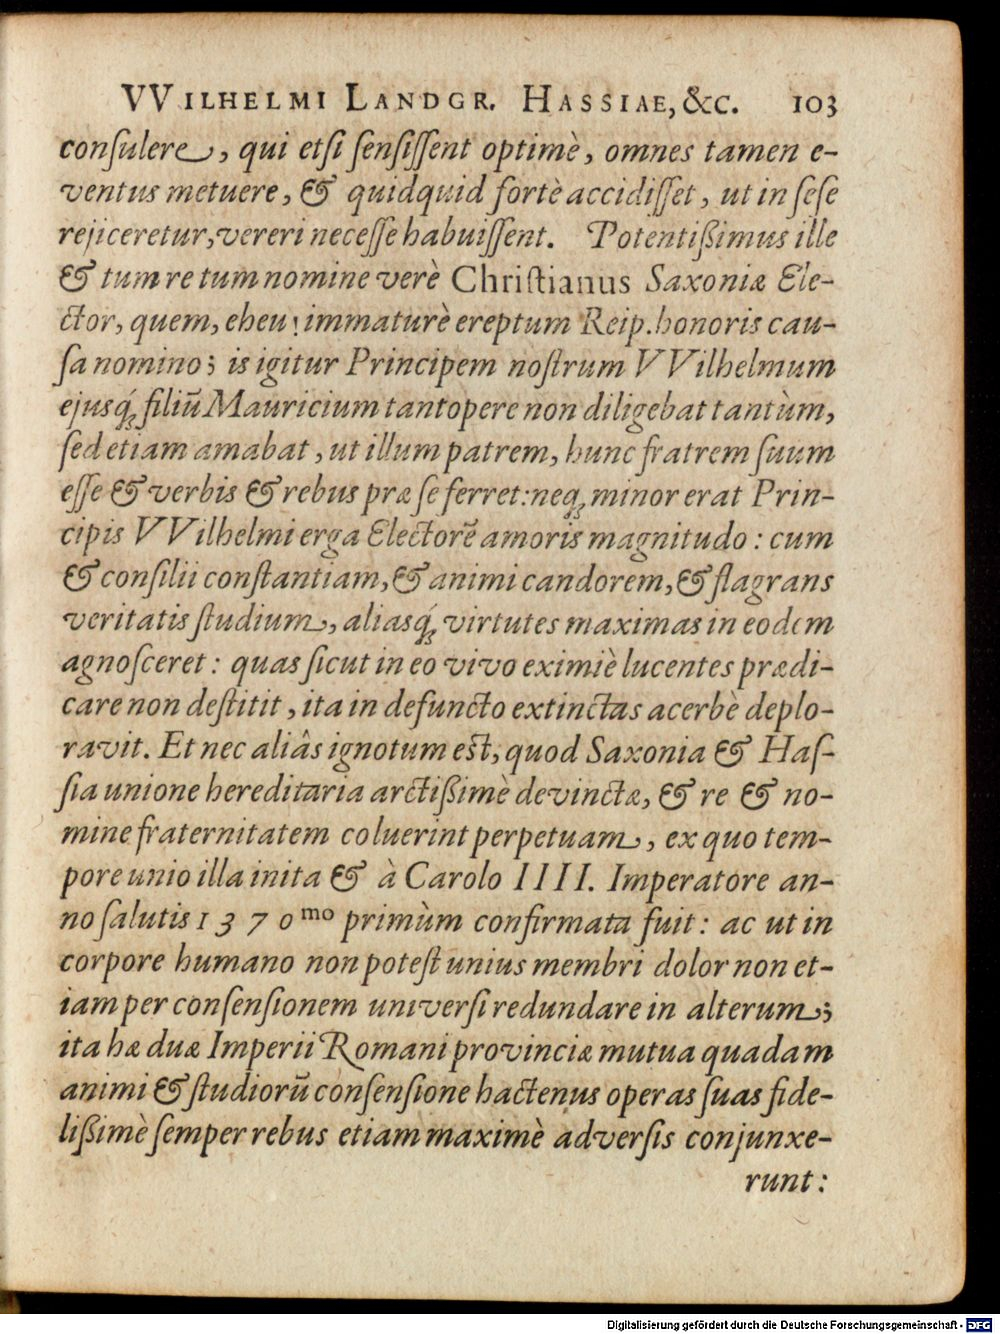 VVILHELMI LANDGR. HASSIAE, &C. 103
conſulere, qui etſi ſenſiſſent optimè, omnes tamen e-
ventus metuere, & quidquid fortè accidiſſet, ut in ſeſe
rejiceretur, vereri neceſſe habuiſſent. Potentißimus ille
& tum re tum nomine verè Chriſtianus Saxoniæ Ele-
ctor, quem, eheu! immaturè ereptum Reip. honoris cau-
ſa nomino; is igitur Principem noſtrum VVilhelmum
ejusq́; filiū Mauricium tantopere non diligebat tantùm,
ſed etiam amabat, ut illum patrem, hunc fratrem ſuum
eſſe & verbis & rebus præ ſe ferret: neq; minor erat Prin-
cipis VVilhelmi erga Electorē amoris magnitudo: cum
& conſilii conſtantiam, & animi candorem, & flagrans
veritatis ſtudium, aliasq́; virtutes maximas in eodem
agnoſceret: quas ſicut in eo vivo eximiè lucentes prædi-
care non deſtitit, ita in defuncto extinctas acerbè deplo-
ravit. Et nec aliâs ignotum eſt, quod Saxonia & Haſ-
ſia unione hereditaria arctißimè devinctæ, & re & no-
mine fraternitatem coluerint perpetuam, ex quo tem-
pore unio illa inita & à Carolo IIII. Imperatore an-
no ſalutis 1370mo primùm confirmata fuit: ac ut in
corpore humano non poteſt unius membri dolor non et-
iam per conſenſionem univerſi redundare in alterum;
ita hæ duæ Imperii Romani provinciæ mutua quadam
animi & ſtudiorū conſenſione hactenus operas ſuas fide-
lißimè ſemper rebus etiam maximè adverſis conjunxe-
runt:
Digitalisierung gefördert durch die Deutsche Forschungsgemeinschaft - DFG